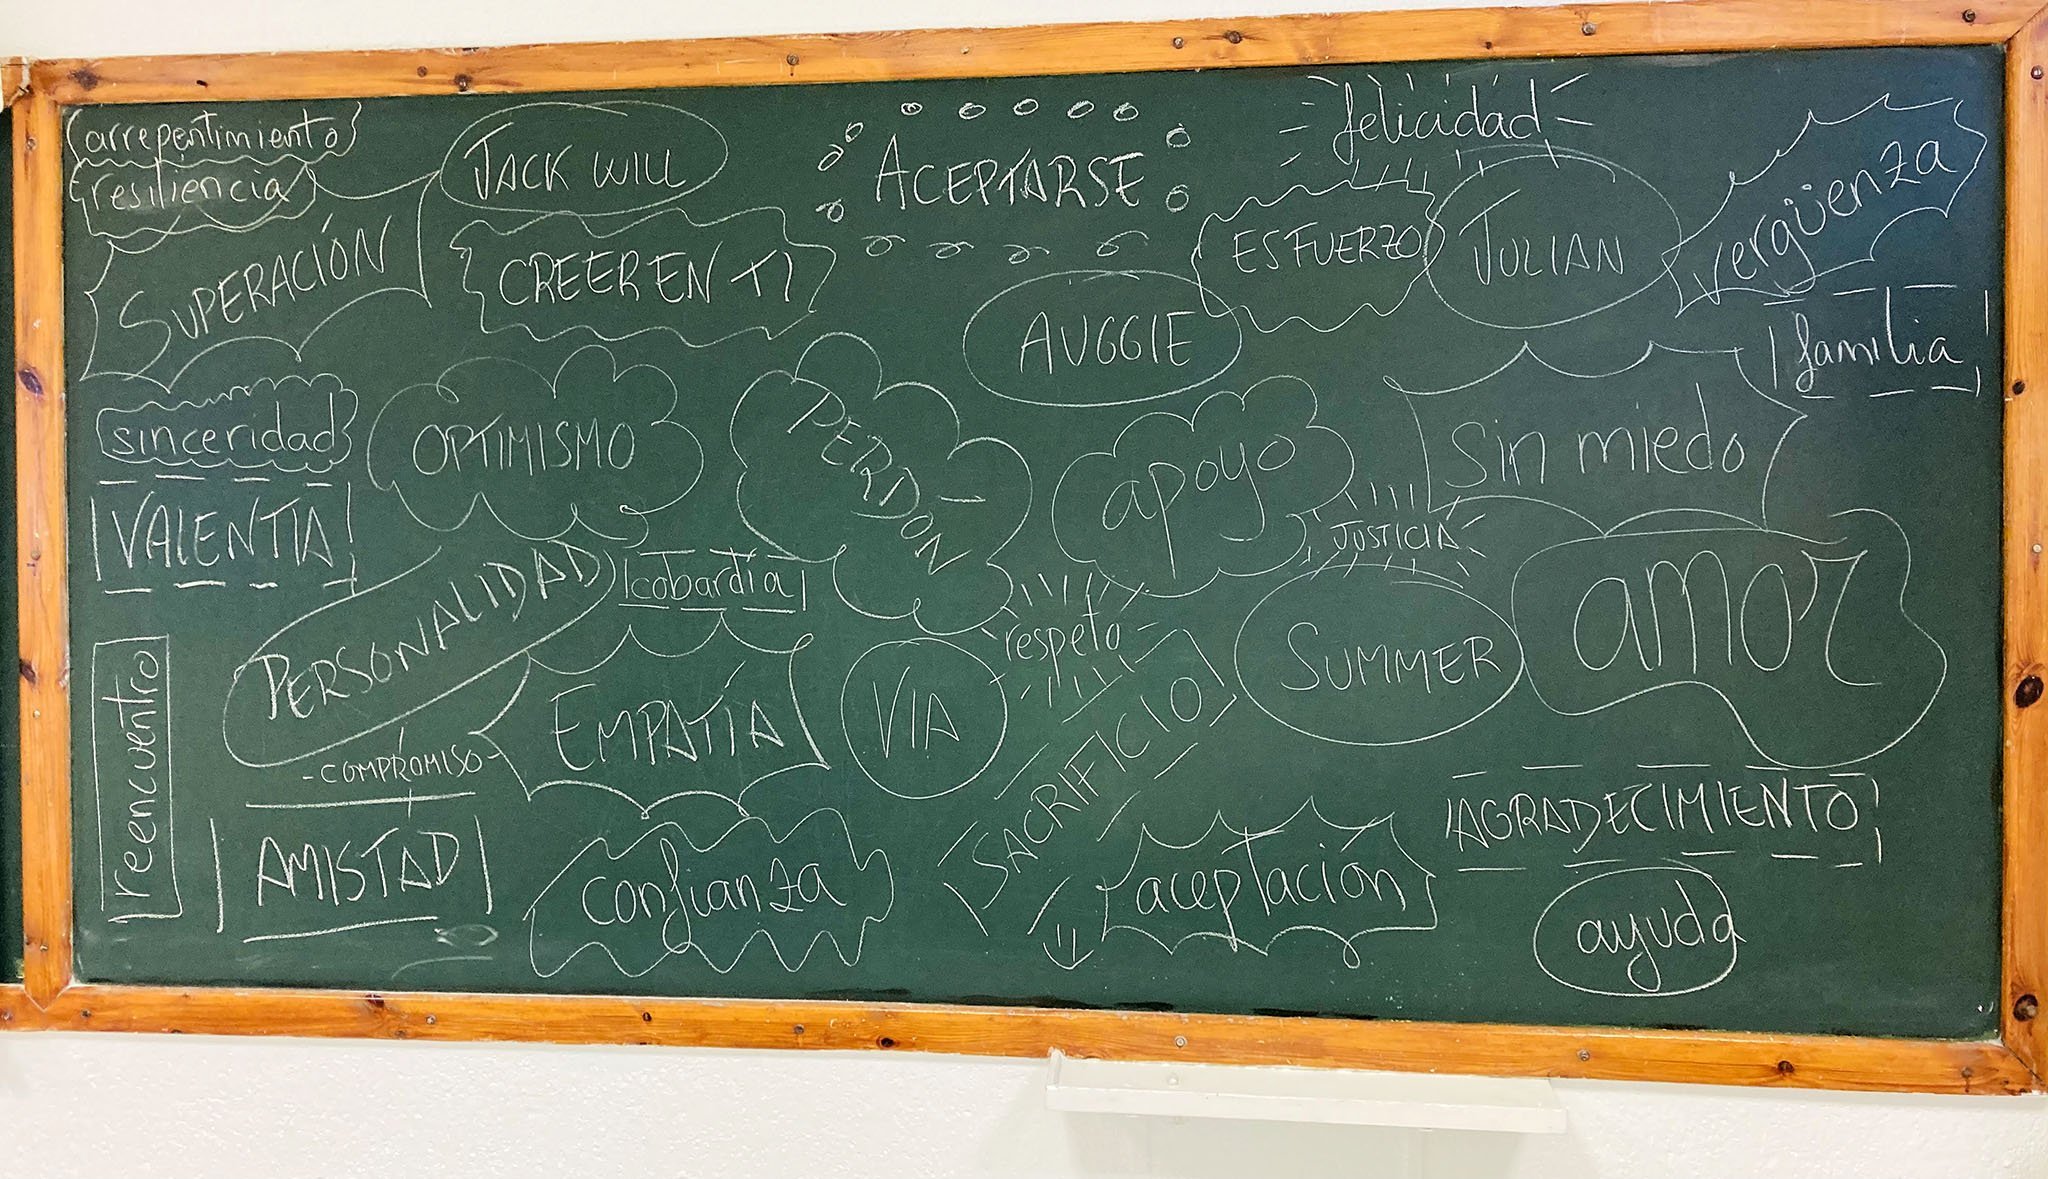 arrepentimiento
resiliencia
SUPERACIÓN
JACK WILL
CREER EN TI
ACEPTARSE
felicidad
ESFUERZO
JULIAN
vergüenza
AUGGIE
familia
sinceridad
OPTIMISMO
PERDÓN
apoyo
sin miedo
VALENTÍA
PERSONALIDAD
cobardía
JUSTICIA
amor
respeto
reencuentro
EMPATÍA
VIA
SACRIFICIO
SUMMER
-COMPROMISO-
AMISTAD
confianza
aceptación
AGRADECIMIENTO
ayuda